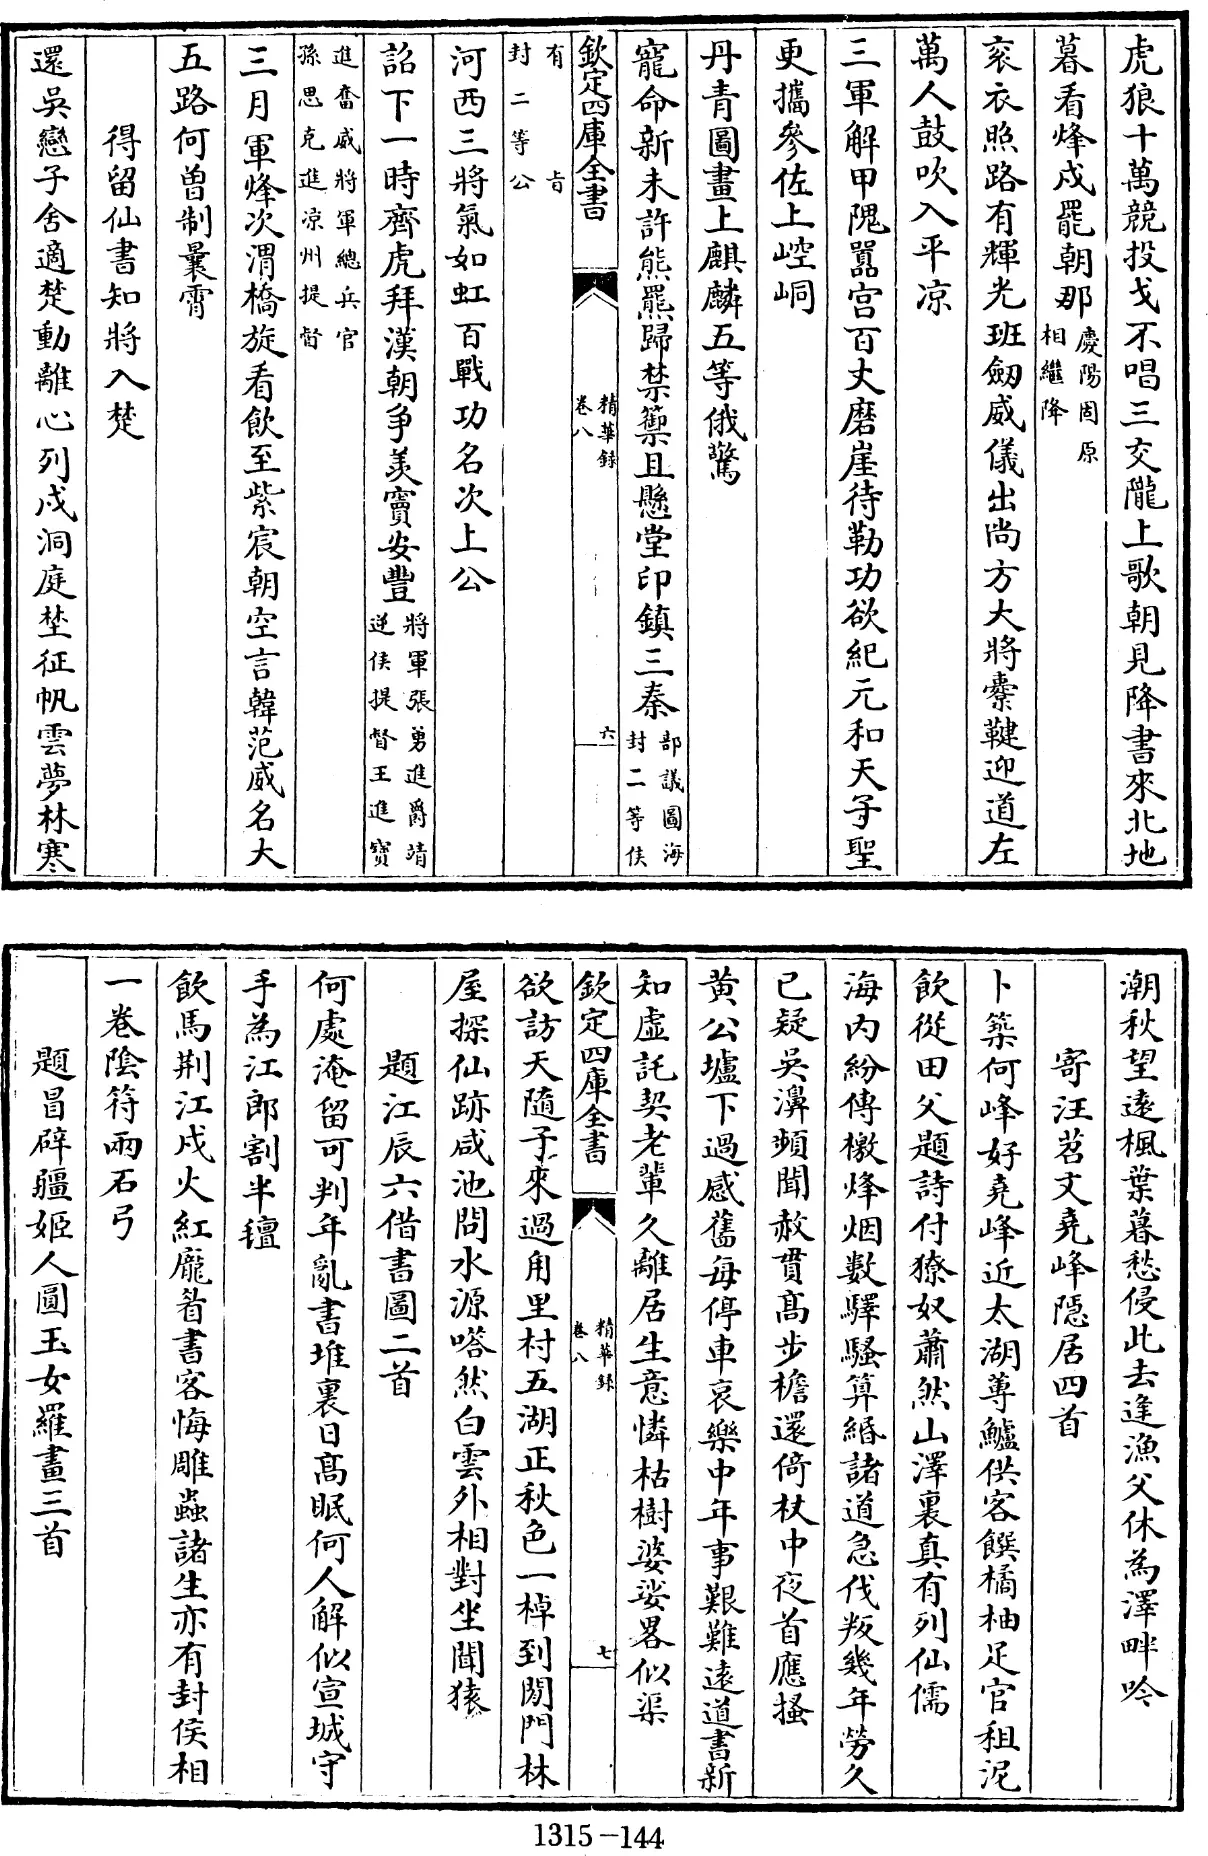 虎狼十萬競投戈不唱三交隴上歌朝見降書來北地
暮看烽戍罷朝那慶陽固原相繼降
衮衣照路有輝光班劔威儀出尚方大將櫜鞬迎道左
萬人鼓吹入平凉
三軍解甲隗囂宫百丈磨崖待勒功欲紀元和天子聖
更攜參佐上崆峒
丹青圖畫上麒麟五等俄驚
寵命新未許熊羆歸禁籞且懸堂印鎮三秦部議圖海封二等侯
欽定四庫全書
精華録
卷八
六
有旨封二等公
河西三將氣如虹百戰功名次上公
詔下一時齊虎拜漢朝争羡竇安豐將軍張勇進爵靖逆侯提督王進寶
進奮威將軍總兵官孫思克進凉州提督
三月軍烽次渭橋旋看飲至紫宸朝空言韓范威名大
五路何曾制曩霄
得留仙書知將入楚
還吳戀子舍適楚動離心列戍洞庭埜征帆雲夢林寒
潮秋望遠楓葉暮愁侵此去逢漁父休為澤畔吟
寄汪苕文堯峰隱居四首
卜築何峰好堯峰近太湖蓴鱸供客饌橘柚足官租泥
飲從田父題詩付獠奴蕭然山澤裏真有列仙儒
海内紛傳檄烽烟數驛騷算緡諸道急伐叛幾年勞久
已疑吳濞頻聞赦貫高步檐還倚杖中夜首應搔
黄公壚下過感舊每停車哀樂中年事艱難遠道書新
知虛託契老輩久離居生意憐枯樹婆娑畧似渠
欽定四庫全書
精華録
卷八
七
欲訪天隨子來過甪里村五湖正秋色一棹到閶門林
屋探仙跡咸池問水源嗒然白雲外相對坐聞猿
題江辰六借書圖二首
何處淹留可判年亂書堆裏日高眠何人解似宣城守
手為江郎割半氊
飲馬荆江戍火紅龎眉書客悔雕蟲諸生亦有封侯相
一卷陰符兩石弓
題冒辟疆姬人圓玉女羅畫三首
1315-144